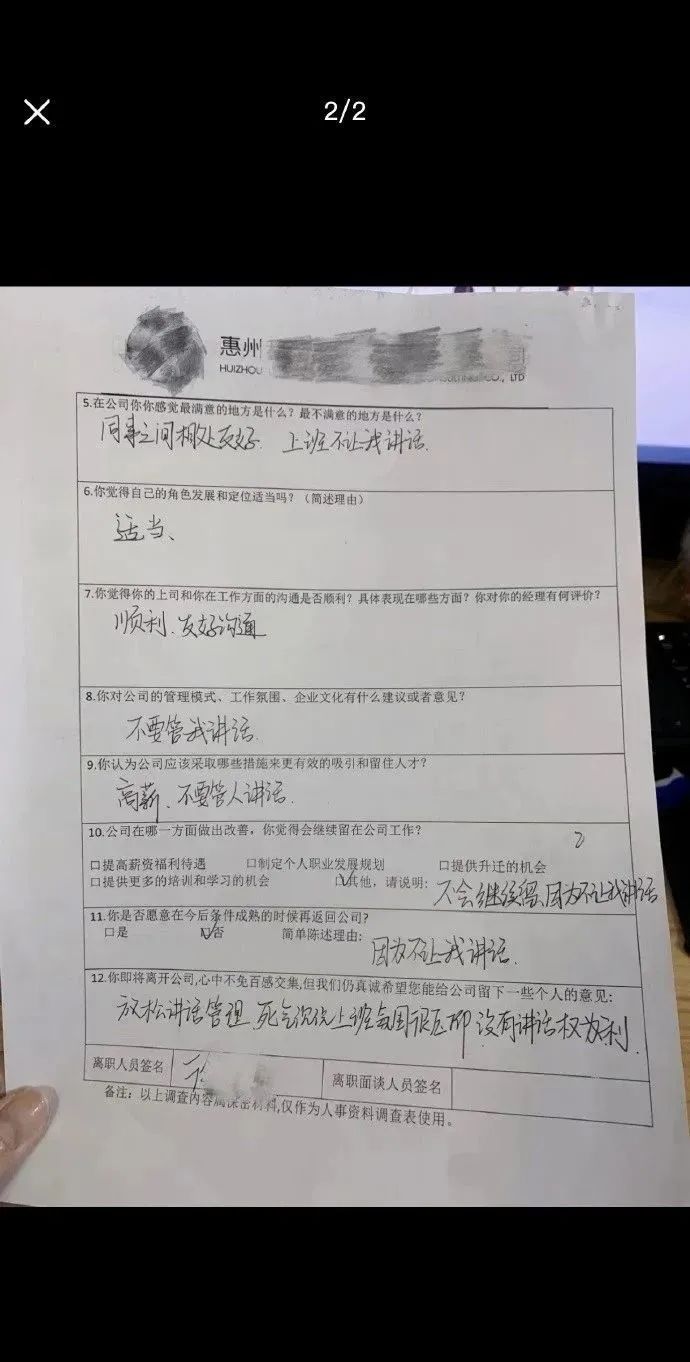 2/2
惠州
HUIZHOU
CO., LTD
5.在公司你你感觉最满意的地方是什么？最不满意的地方是什么？
同事之间相处友好. 上班不让我讲话.
6.你觉得自己的角色发展和定位适当吗？（简述理由）
适当、
7.你觉得你的上司和你在工作方面的沟通是否顺利？具体表现在哪些方面？你对你的经理有何评价？
顺利. 友好沟通
8.你对公司的管理模式、工作氛围、企业文化有什么建议或者意见？
不要管我讲话.
9.你认为公司应该采取哪些措施来更有效的吸引和留住人才？
高薪、不要管人讲话.
10.公司在哪一方面做出改善，你觉得会继续留在公司工作？
口提高薪资福利待遇 口制定个人职业发展规划 口提供升迁的机会
口提供更多的培训和学习的机会 口其他，请说明：不会继续留、因为不让我讲话
11.你是否愿意在今后条件成熟的时候再返回公司?
口是 口否 简单陈述理由: 因为不让我讲话.
12.你即将离开公司,心中不免百感交集,但我们仍真诚希望您能给公司留下一些个人的意见:
放松讲话管理 死气沉沉上班氛围很压抑 没有讲话权为利.
离职人员签名 离职面谈人员签名
备注：以上调查内容属保密材料,仅作为人事资料调查表使用。